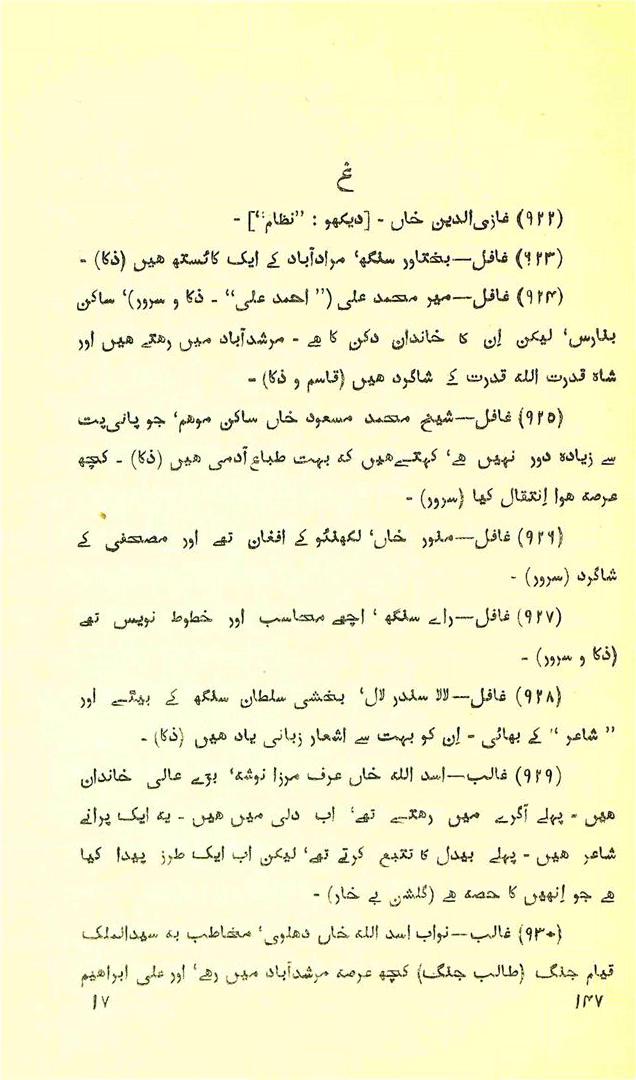 غ
(۹۲۲) غازی‌الدین خاں - [دیکھو : ”نظام“] -
(۹۲۳) غافل—بختاور سنگھ‘ مرادآباد کے ایک کائستھ ھیں (ذکا) -
(۹۲۴) غافل—میر محمد علی (” احمد علی“ - ذکا و سرور)‘ ساکن
بنارس‘ لیکن اِن کا خاندان دکن کا ھے - مرشدآباد میں رھتے ھیں اور
شاہ قدرت اللہ قدرت کے شاگرد ھیں (قاسم و ذکا) -
(۹۲۵) غافل—شیخ محمد مسعود خاں ساکن موھم‘ جو پانی‌پت
سے زیادہ دور نہیں ھے‘ کہتے‌ھیں کہ بہت طباع‌آدمی ھیں (ذکا) - کچھ
عرصہ ھوا اِنتقال کیا (سرور) -
(۹۲۶) غافل—منور خاں‘ لکھنئو کے افغان تھے اور مصحفی کے
شاگرد (سرور) -
(۹۲۷) غافل—راے سنگھ ‘ اچھے محاسب اور خطوط نویس تھے
(ذکا و سرور) -
(۹۲۸) غافل—لالا سندر لال‘ بخشی سلطان سنگھ کے بیٹے اور
” شاعر “ کے بھائی - اِن کو بہت سے اشعار زبانی یاد ھیں (ذکا) -
(۹۲۹) غالب—اسد اللہ خاں عرف مرزا نوشہ‘ بڑے عالی خاندان
ھیں - پہلے آگرے میں رھتے تھے‘ اب دلی میں ھیں - یہ ایک پرانے
شاعر ھیں - پہلے بیدل کا تتبع کرتے تھے‘ لیکن اب ایک طرز پیدا کیا
ھے جو اِنھیں کا حصہ ھے (گلشن بے خار) -
(۹۳۰) غالب—نواب اسد اللہ خاں دھلوی‘ مخاطب بہ سیدالملک
قیام جنگ (طالب جنگ) کچھ عرصہ مرشدآباد میں رھے‘ اور علی ابراھیم
۱۴۷ ۱۷